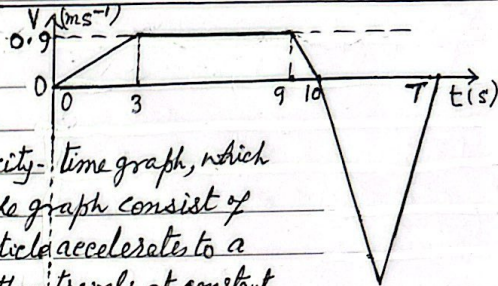 V (ms⁻¹)
0.9
0
0 3 9 10 T t(s)
city-time graph, which
e graph consist of
ticle accelerates to a
travels at constant